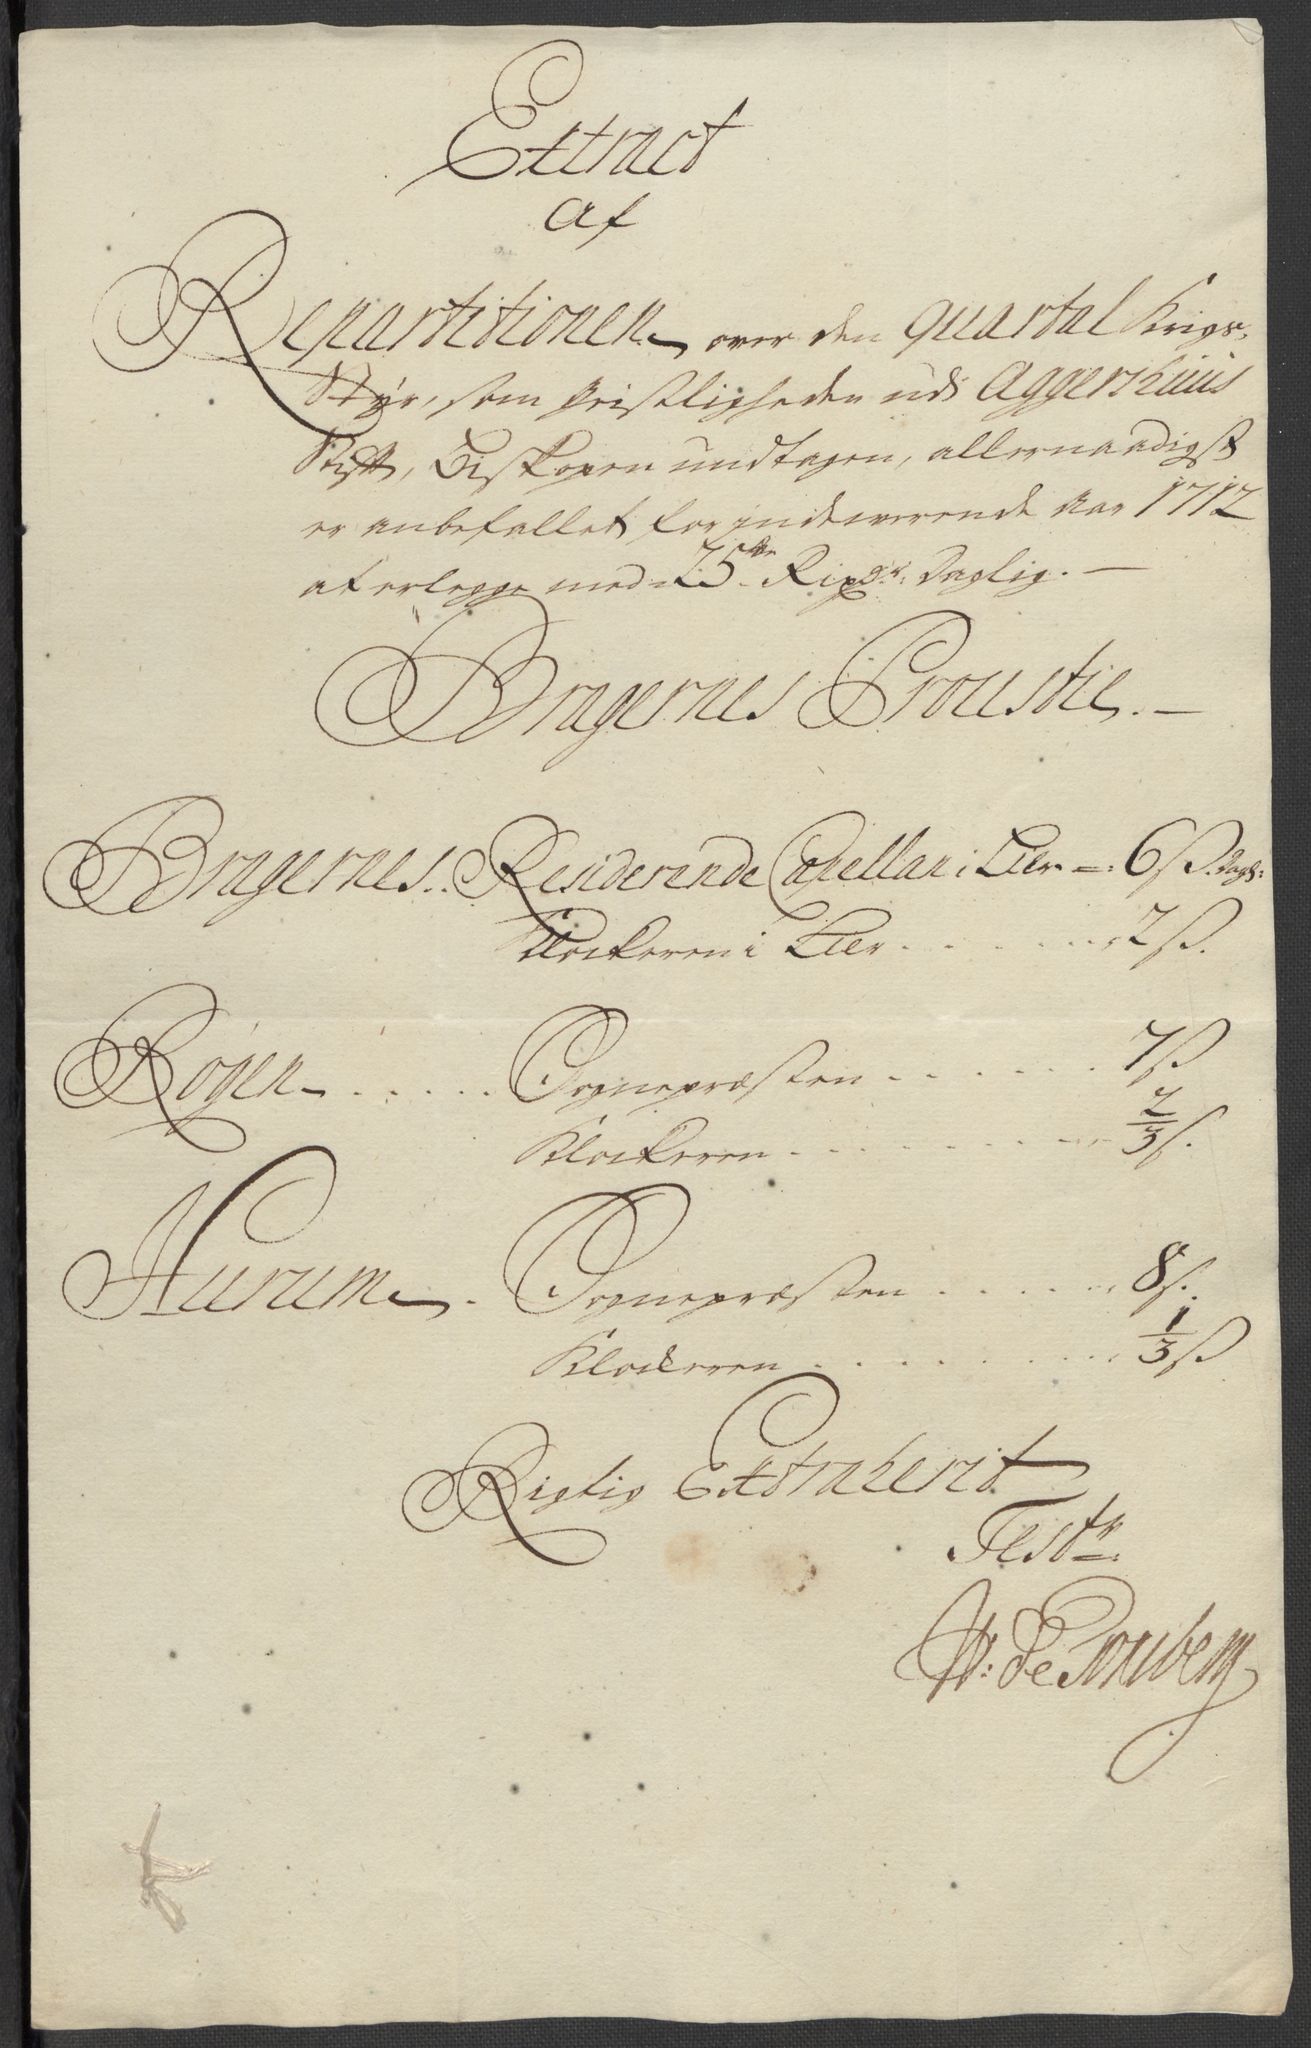 Extract
Af
Repartitionen over den Quartal Krigs-
Styr, som Geistligheden udi Aggershuus
Stift, Biskopen undtagen, allernaadigst
er anbefallet for indeverende Aar 1712
at erlegge med 25de Rixdr: Daglig.
Bragernes Proustie.
Bragernes. Residerende Capellan i Lier 6 ß. Dagl:
Klockeren i Lier . . . . . . . 2 ß.
Røgen . . . . . Sognepræsten . . . . . . . 7 ß
Klockeren . . . . . . . . 2/3 ß.
Hurum . Sognepræsten . . . . . . 8 ß.
Klockeren . . . . . . . . 1/3 ß
Rigtig Extraherit
Test:
W: de Tonsberg